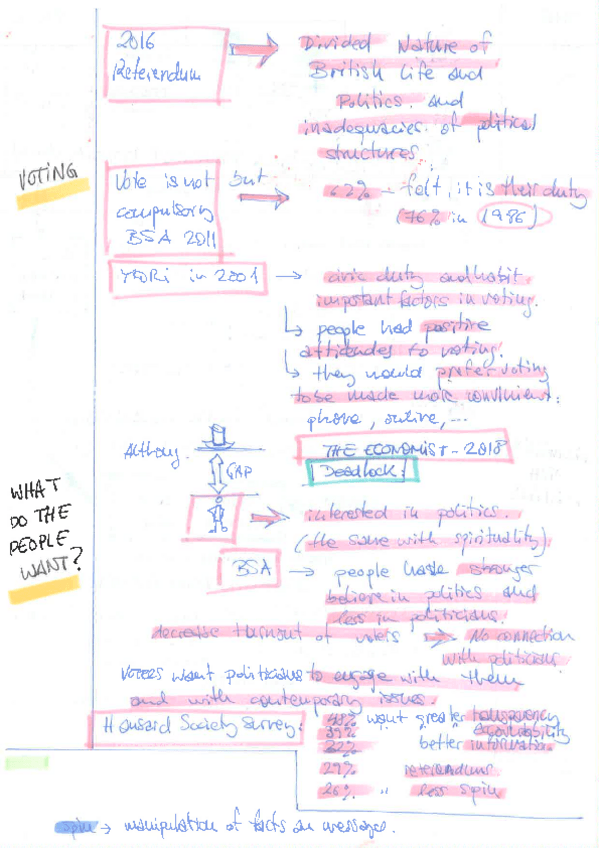 2016
Referendum
Divided Nature of
British Life and
Politics. and
inadequacies of political
structures
VOTING
Vote is not but
compulsory
BSA 2011
62% - felt, it is their duty
(76% in 1986)
MORI in 2001
civic duty and habit
important factors in voting.
people had positive
attitudes to voting.
they would prefer voting
to be made more convinient:
phone, online, ...
Althoug.
GAP
THE ECONOMIST - 2018
Deadlock!
WHAT
DO THE
PEOPLE
WANT?
interested in politics.
(the same with spirituality).
BSA
people have stronger
believe in politics and
less in politicians.
decrease turnout of voters
No connection
with politicians.
VOTERS want politicians to engage with them
and with contemporary issues.
Hansard Society Survey:
48% want greater transparency
39% accountability
32% better information
29% referendums
26% " less spin
spin → manipulation of facts on messages.